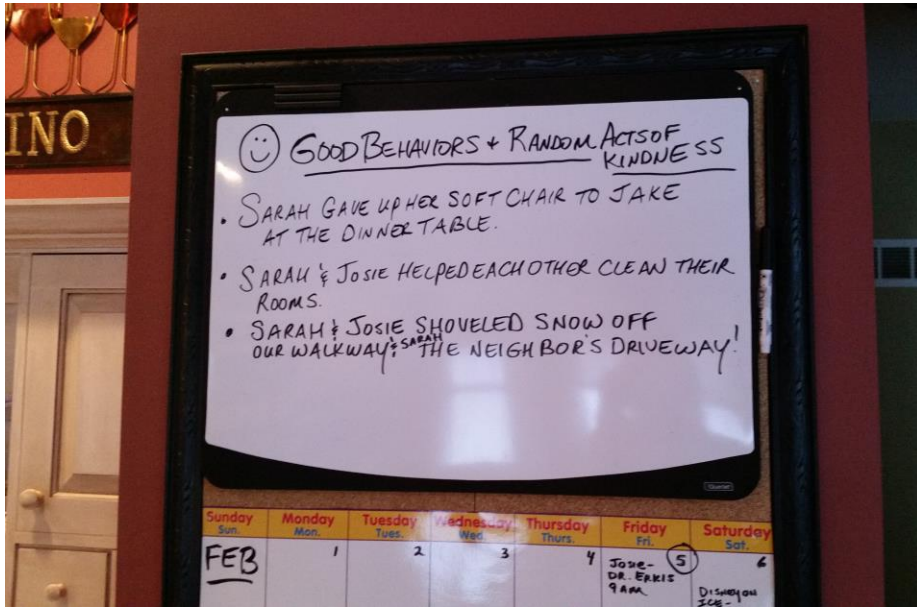 INO
GOOD BEHAVIORS + RANDOM ACTS OF
KINDNESS
• SARAH GAVE UP HER SOFT CHAIR TO JAKE
AT THE DINNER TABLE.
• SARAH & JOSIE HELPED EACH OTHER CLEAN THEIR
ROOMS.
• SARAH & JOSIE SHOVELED SNOW OFF
OUR WALKWAY! & SARAH THE NEIGHBOR'S DRIVEWAY!
Quartet
Sunday Monday Tuesday Wednesday Thursday Friday Saturday
Sun. Mon. Tues. Wed. Thurs. Fri. Sat.
FEB 1 2 3 4 5 6
JOSIE-
DR. ERKIS
9 AM
DISNEY ON
ICE-